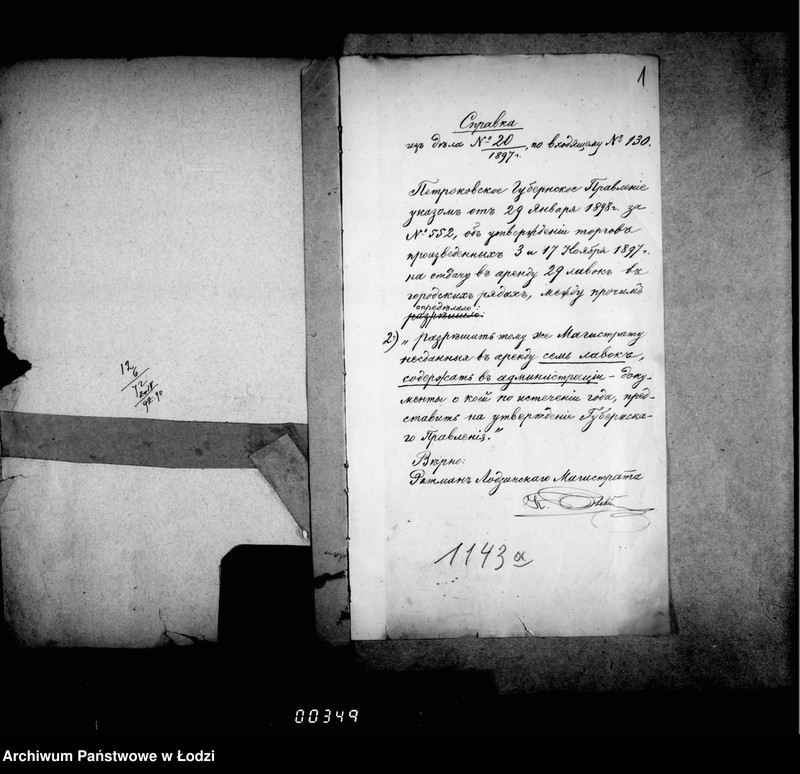 1
Справка
изъ дѣла № 20/1897 г., по входящему № 130.
Петроковское Губернское Правленіе
указомъ отъ 29 Января 1898 г. за
№ 552, объ утвержденіи торговъ
произведенныхъ 3 и 17 Ноября 1897 г.
на отдачу въ аренду 29 лавокъ въ
городскихъ рядахъ, между прочимъ
опредѣлило:
разрѣшило:
2) „разрѣшить тому же Магистрату
несданные въ аренду семь лавокъ,
содержать въ администраціи – доку-
менты о коей по истеченіи года, пред-
ставить на утвержденіе Губернска-
го Правленія."
Вѣрно:
Ратманъ Лодзинскаго Магистрата
1143 a
12/6
72
00349
Archiwum Państwowe w Łodzi